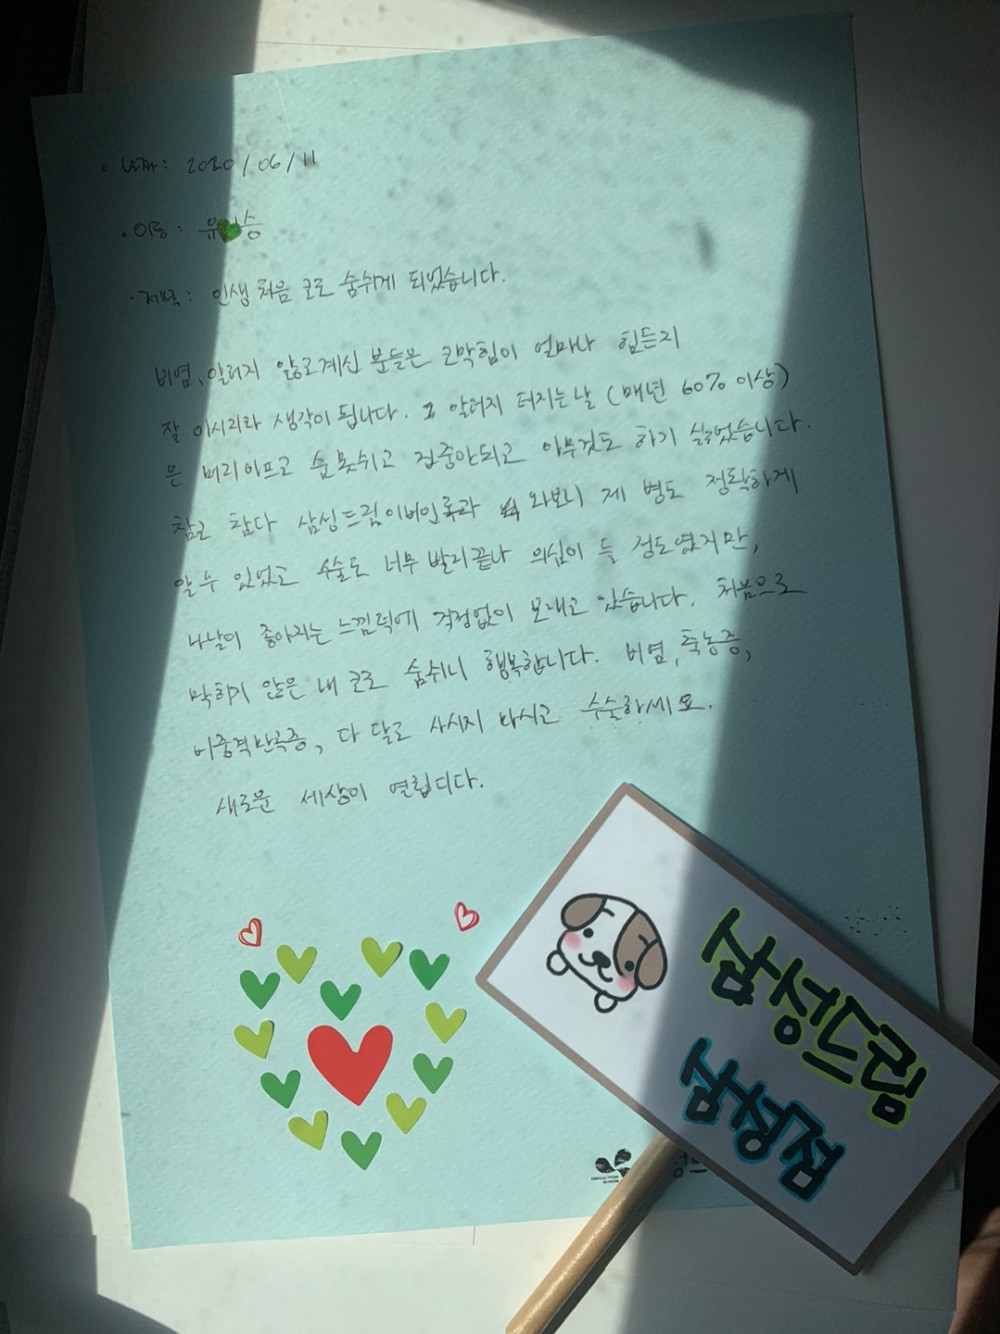 · 날짜: 2020/06/11
· 이름: 유 승
· 제목: 인생 처음 코로 숨쉬게 되었습니다.
비염, 알러지 앓고계신 분들은 코막힘이 얼마나 힘든지
잘 아시리라 생각이 됩니다. 알러지 터지는날 (매년 60% 이상)
은 머리아프고 숨못쉬고 집중안되고 아무것도 하기 싫었습니다.
참고 참다 삼성드림이비인후과 와보니 제 병도 정확하게
알수 있었고 수술도 너무 빨리끝나 의심이 들 정도였지만,
나날이 좋아지는 느낌덕에 걱정없이 보내고 있습니다. 처음으로
막히지 않은 내 코로 숨쉬니 행복합니다. 비염, 축농증,
비중격만곡증, 다 달고 사시지 마시고 수술하세요.
새로운 세상이 열립디다.
삼성드림